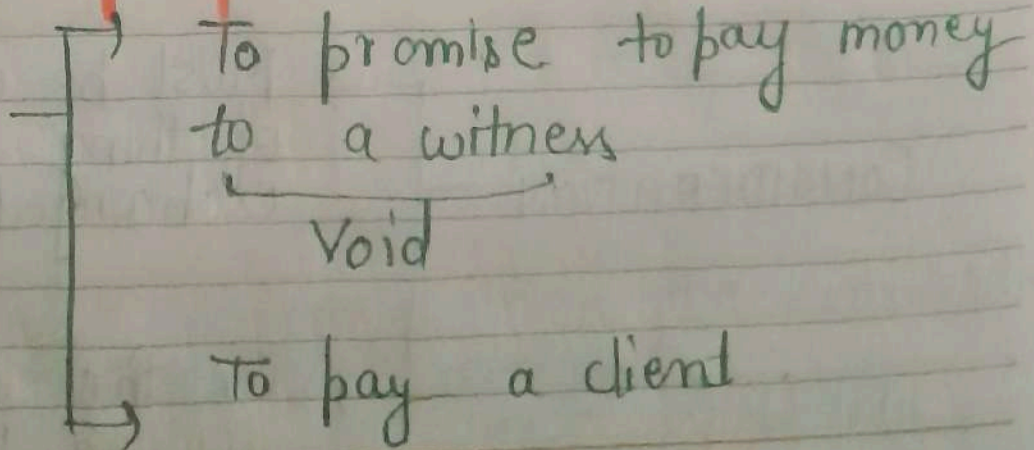 To promise to pay money
to a witness
Void
To pay a client